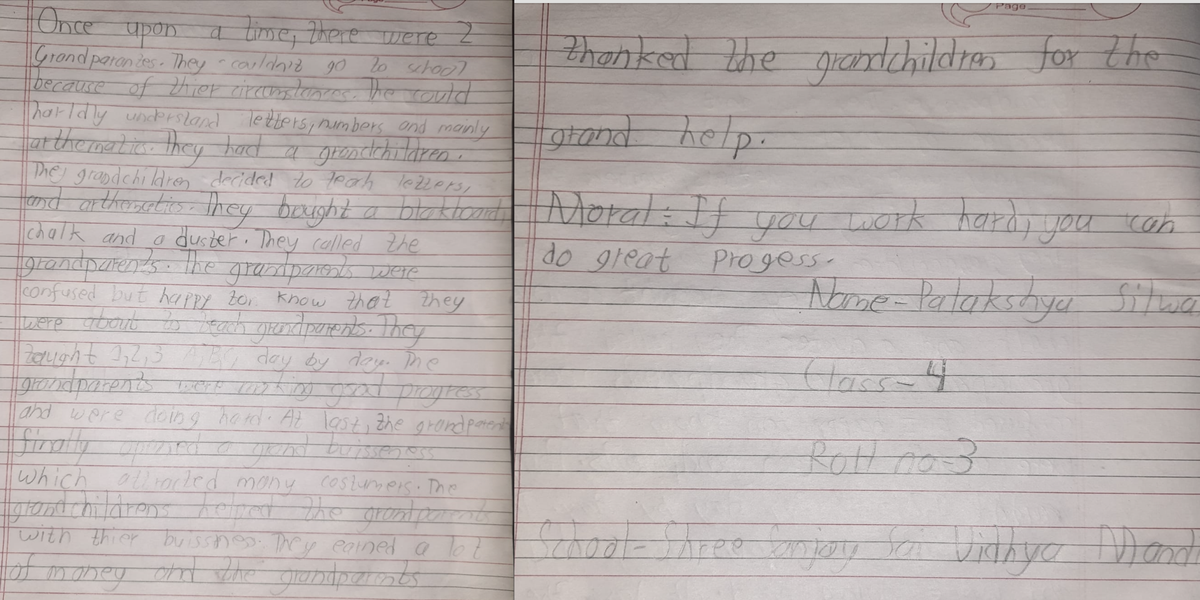 Once upon a time, there were 2
Grandparanies. They couldn't go to school
because of thier circumstances. The could
harldly understand letters, numbers and mainly
arthematics. They had a grandchildren.
The grandchildren decided to teach letters,
and arthematics. They bought a blakboard,
chalk and a duster. They called the
grandparents. The grandparents were
confused but happy to know that they
were about to teach grandparents. They
taught 1,2,3 A,B,C, day by day. The
grandparents were making good progress
and were doing hard. At last, the grandparents
finally opened a grand buisseness
which attracted many costumers. The
grandchildrens helped the grandparents
with thier buissnes. They eained a lot
of money and the grandparents
Page
thanked the grandchildren for the
grand help.
Moral:- If you work hard, you can
do great progess.
Name-Palakshya Silwa
Class-4
Roll no-3
School-Shree Sanjay Sai Vidhya Mand